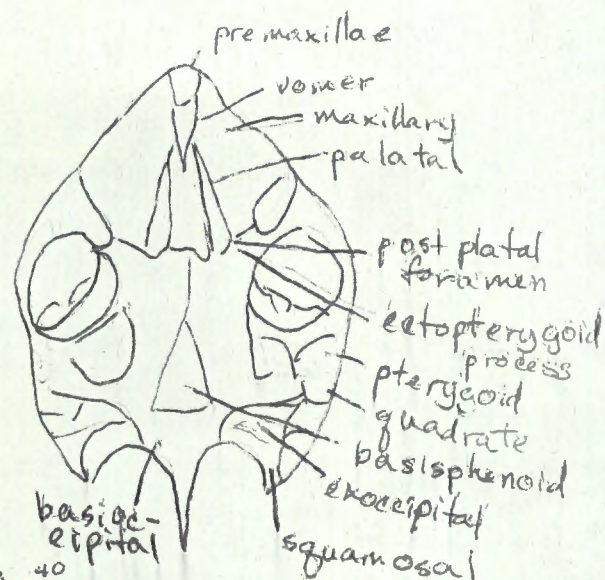 premaxillae
vomer
maxillary
palatal
post platal
foramen
ectopterygoid
process
pterygoid
quadrate
basisphenoid
exoccipital
basioc-
cipital
squamosal
40